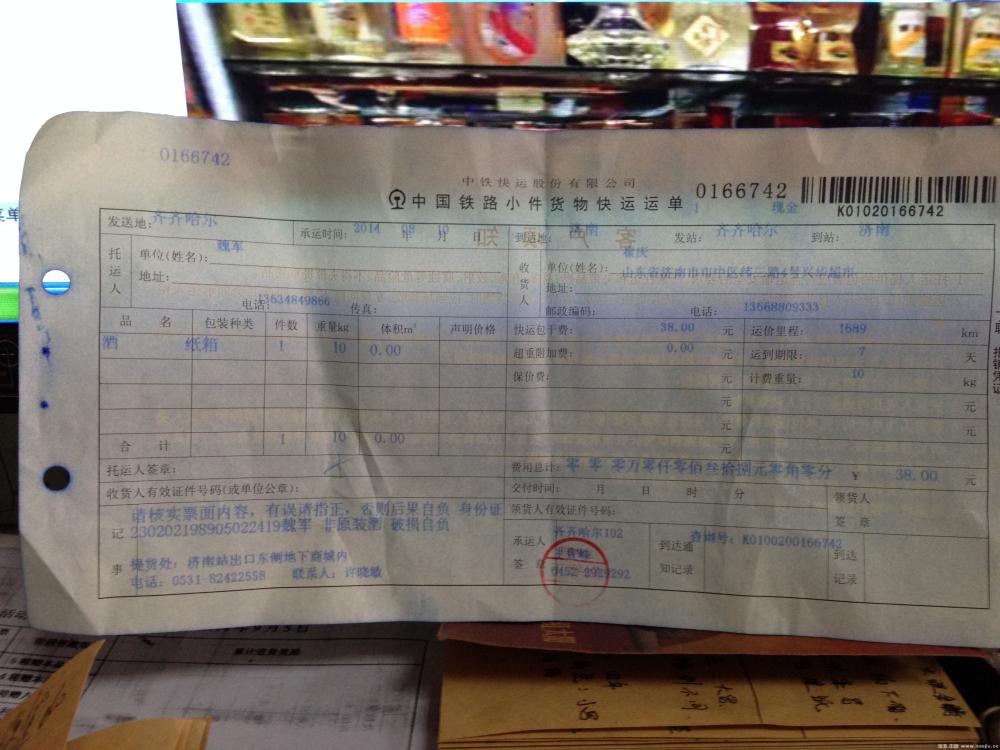 0166742
中铁快运股份有限公司
中国铁路小件货物快运运单
0166742
K01020166742
1 现金
发送地: 齐齐哈尔
承运时间: 2014 年 09 月 10 日
到达地: 济南
发站: 齐齐哈尔
到站: 济南
托运人
单位(姓名): 魏军
地址:
电话: 13634849866 传真:
收货人
单位(姓名): 崔庆
地址: 山东省济南市市中区纬二路4号兴华超市
邮政编码: 电话: 13668809333
品名 包装种类 件数 重量kg 体积m³ 声明价格
酒 纸箱 1 10 0.00
合计 1 10 0.00
快运包干费: 38.00 元 运价里程: 1689 km
超重附加费: 0.00 元 运到期限: 7 天
保价费: 元 计费重量: 10 kg
元 元
元 元
元
托运人签章:
费用总计: 零 零 零万零仟零佰叁拾捌元零角零分 ￥ 38.00 元
收货人有效证件号码(或单位公章):
交付时间: 月 日 时 分
领货人签章
领货人有效证件号码:
记事
请核实票面内容，有误请指正，否则后果自负 身份证
230202198905022419魏军 非原装酒 破损自负
提货处: 济南站出口东侧地下商城内
电话: 0531-82422558 联系人: 许晓敏
承运人签章
齐齐哈尔102
0452-2929292
到达通知记录
查询号: K0100200166742
到达记录